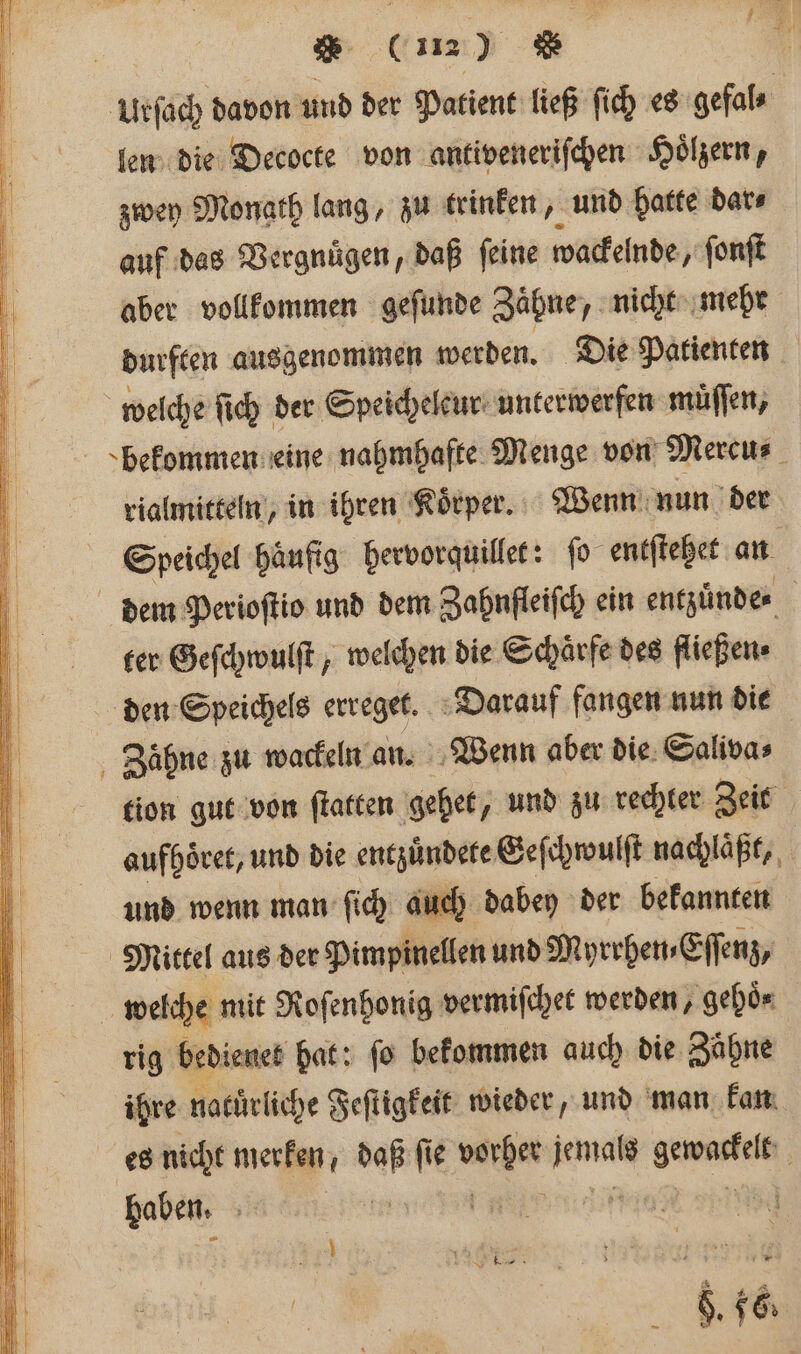 ❀ (112) ❀
Urſach davon und der Patient ließ ſich es gefal⸗
len die Decocte von antiveneriſchen Hoͤlzern,
zwey Monath lang, zu trinken, und hatte dar⸗
auf das Vergnuͤgen, daß ſeine wackelnde, ſonſt
aber vollkommen geſunde Zaͤhne, nicht mehr
durften ausgenommen werden. Die Patienten
welche ſich der Speichelcur unterwerfen muͤſſen,
bekommen eine nahmhafte Menge von Mercu⸗
rialmitteln, in ihren Koͤrper. Wenn nun der
Speichel haͤufig hervorquillet: ſo entſtehet an
dem Perioſtio und dem Zahnfleiſch ein entzuͤnde⸗
ter Geſchwulſt, welchen die Schaͤrfe des fließen⸗
den Speichels erreget. Darauf fangen nun die
Zaͤhne zu wackeln an. Wenn aber die Saliva⸗
tion gut von ſtatten gehet, und zu rechter Zeit
aufhoͤret, und die entzuͤndete Geſchwulſt nachlaͤßt,
und wenn man ſich auch dabey der bekannten
Mittel aus der Pimpinellen und Myrrhen⸗Eſſenz,
welche mit Roſenhonig vermiſchet werden, gehoͤ⸗
rig bedienet hat: ſo bekommen auch die Zaͤhne
ihre natuͤrliche Feſtigkeit wieder, und man kan
es nicht merken, daß ſie vorher jemals gewackelt
haben.
§. 56.